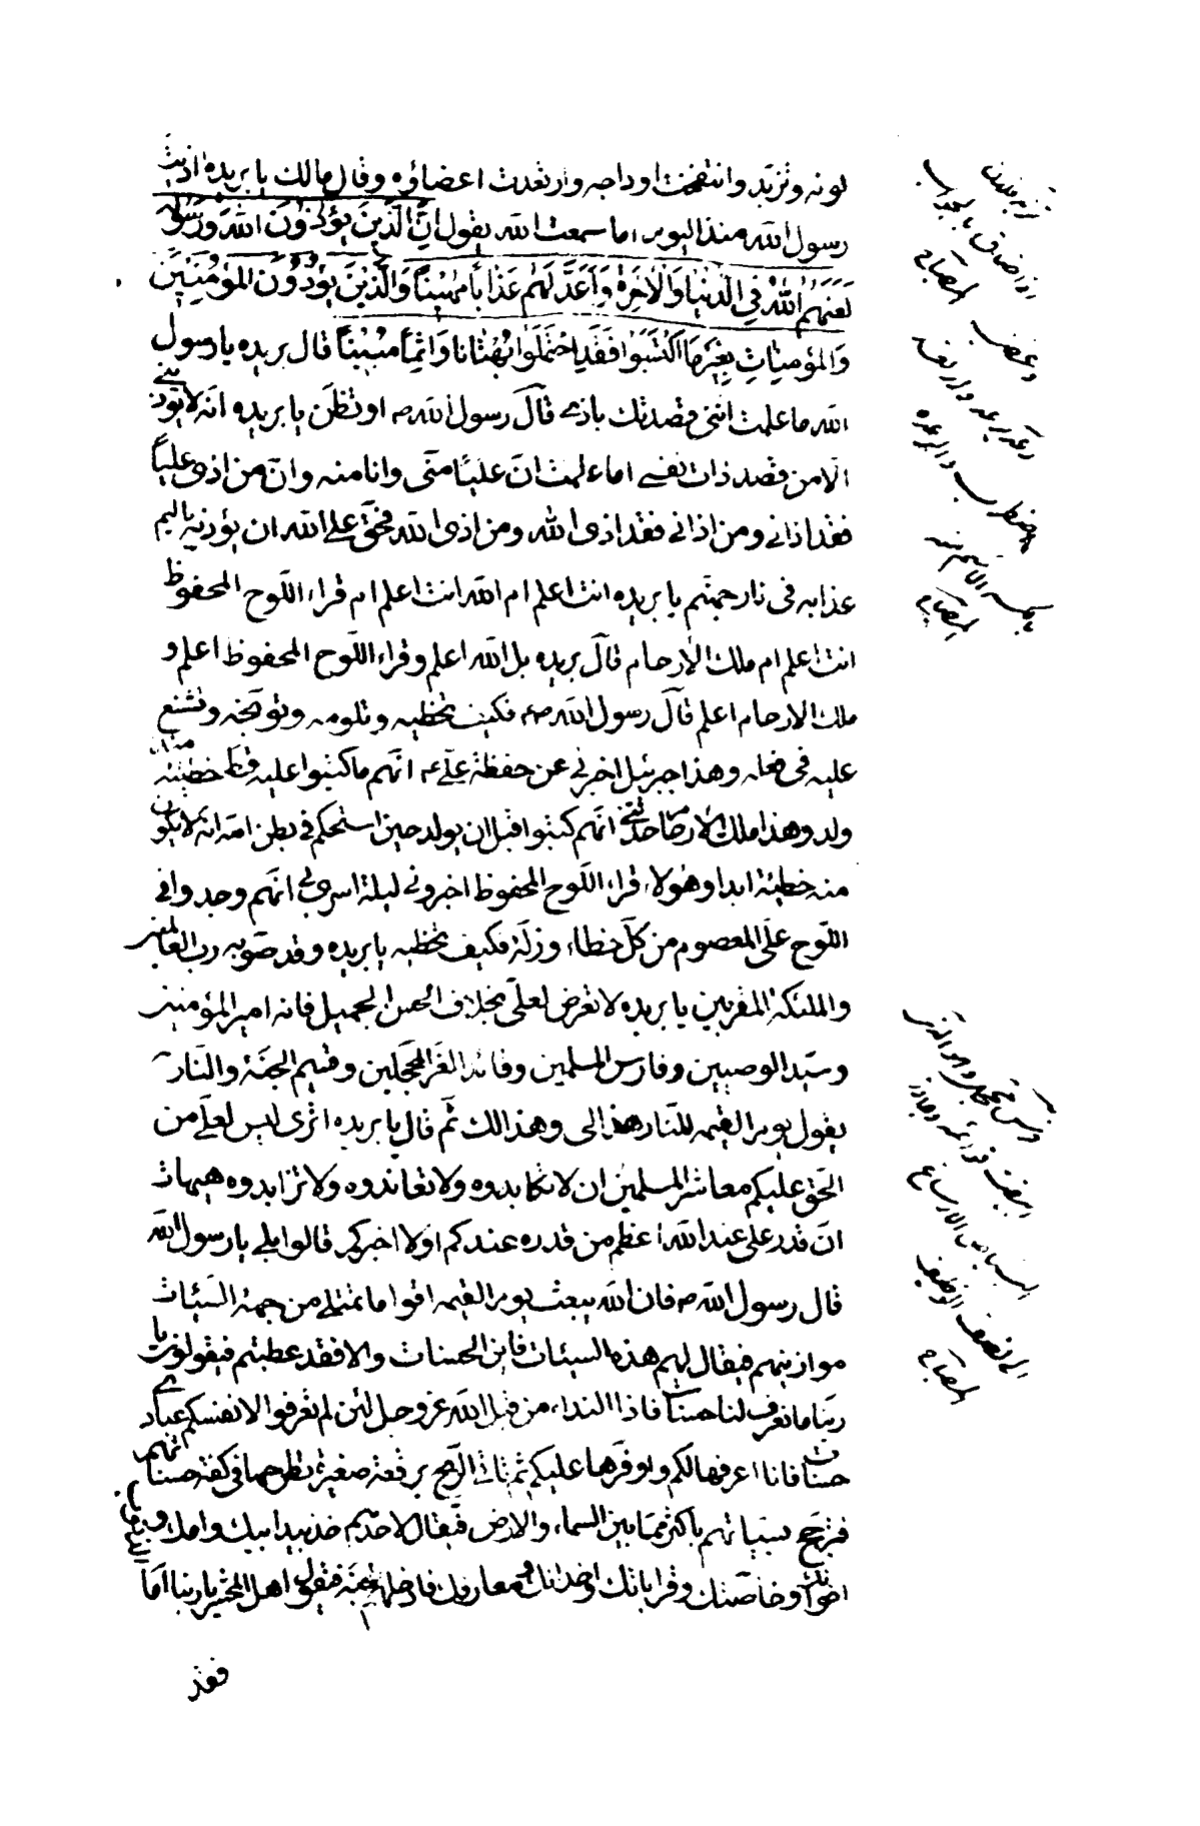 لونه وتزبد وانتفخت اوداجه وارتعدت اعضاؤه وقال مالك يا بريده اذيت
رسول الله منذ اليوم اما سمعت الله يقول انّ الَّذينَ يؤذُونَ اللهَ وَرَسُولَه
لَعَنَهُم اللهُ فِي الدُّنيا وَالاخِرَةِ وَاَعَدَّ لَهُم عَذاباً مُهيناً وَالَّذينَ يؤذُونَ المؤمِنينَ
وَالمؤمِناتِ بِغَيرِ مَا اكتَسَبُوا فَقَدِ احتَمَلوُا بُهتانا وَاِثماً مُبيناً قال بريده يا رسول
الله ما علمت انّنى قصدتك باذى قالَ رسول الله ص اوتظنّ يا بريده انه لا يؤذينى
الا من قصد ذات نفسى اما علمت انّ عليّا منّى وانا منه وانّ من اذى عليّاً
فقد اذانى ومن اذانى فقد اذى الله ومن اذى الله فحقّ على الله ان يؤذيه باليم
عذابه فى نار جهنّم يا بريده انت اعلم ام الله انت اعلم ام قراء اللّوح المحفوظ
انت اعلم ام ملك الارحام قالَ بريده بل الله اعلم وقراء اللّوح المحفوظ اعلم و
ملك الارحام اعلم قالَ رسول الله ص فكيف تخطّيه وتلومه وتوبّخه وتشنع
عليه فى فعله وهذا جبرئيل اخبرنى عن حفظة علىّ ع انّهم ما كتبوا عليه قط خطيئة منذ
ولد وهذا ملك الارحام حدثنى انّهم كتبوا قبل ان يولد حين استحكم فى بطن امّه انه لا يكون
منه خطيئة ابدا وهولاء قراء اللّوح المحفوظ اخبرونى ليلة اسرى بى انّهم وجدوا فى
اللّوح علىّ المعصوم من كلّ خطاء وزلّة فكيف تخطيه يا بريده وقد صوّبه ربّ العالمين
والملئكة المقربين يا بريده لا تعرض لعلىّ بخلاف الحسن الجميل فانه امير المؤمنين
وسيّد الوصيين وفارس المسلمين وقائد الغرّ المحجّلين وقسيم الجنّة والنّار
يقول يوم القيمه للنّار هذا لى وهذا لك ثمّ قال يا بريده اترى ليس لعلىّ من
الحقّ عليكم معاشر المسلمين ان لا تكايدوه ولا تعاندوه ولا تزايدوه هيهات
انّ قدر على عند الله اعظم من قدره عندكم اولا اخبركم قالوا بلى يا رسول الله
قال رسول الله ص فان الله يبعث يوم القيمه اقواما تمتلى من جهة السّيئات
موازينهم فيقال لهم هذه السيئات فاين الحسنات والا فقد عطبتم فيقولون يا
ربّنا ما نعرف لنا حسنات فاذا النداء من قبل الله عزّ وجل لئن لم تعرفوا لانفسكم عبادى
حسنات فانا اعرفها لكم واوفّرها عليكم ثم تاتى الريح برقعة صغيرة تطرحها فى كفّة حسناتهم
فترجح بسيّاتهم باكثر ممّا بين السماء والارض فيقال لاحدهم خذ بيد ابيك وامك و
اخوانك وخاصّتك وقراباتك واخدانك ومعارفك فادخلهم الجنّة فيقول اهل المحشر يا ربنا اما
المصباح
المصباح
المصباح